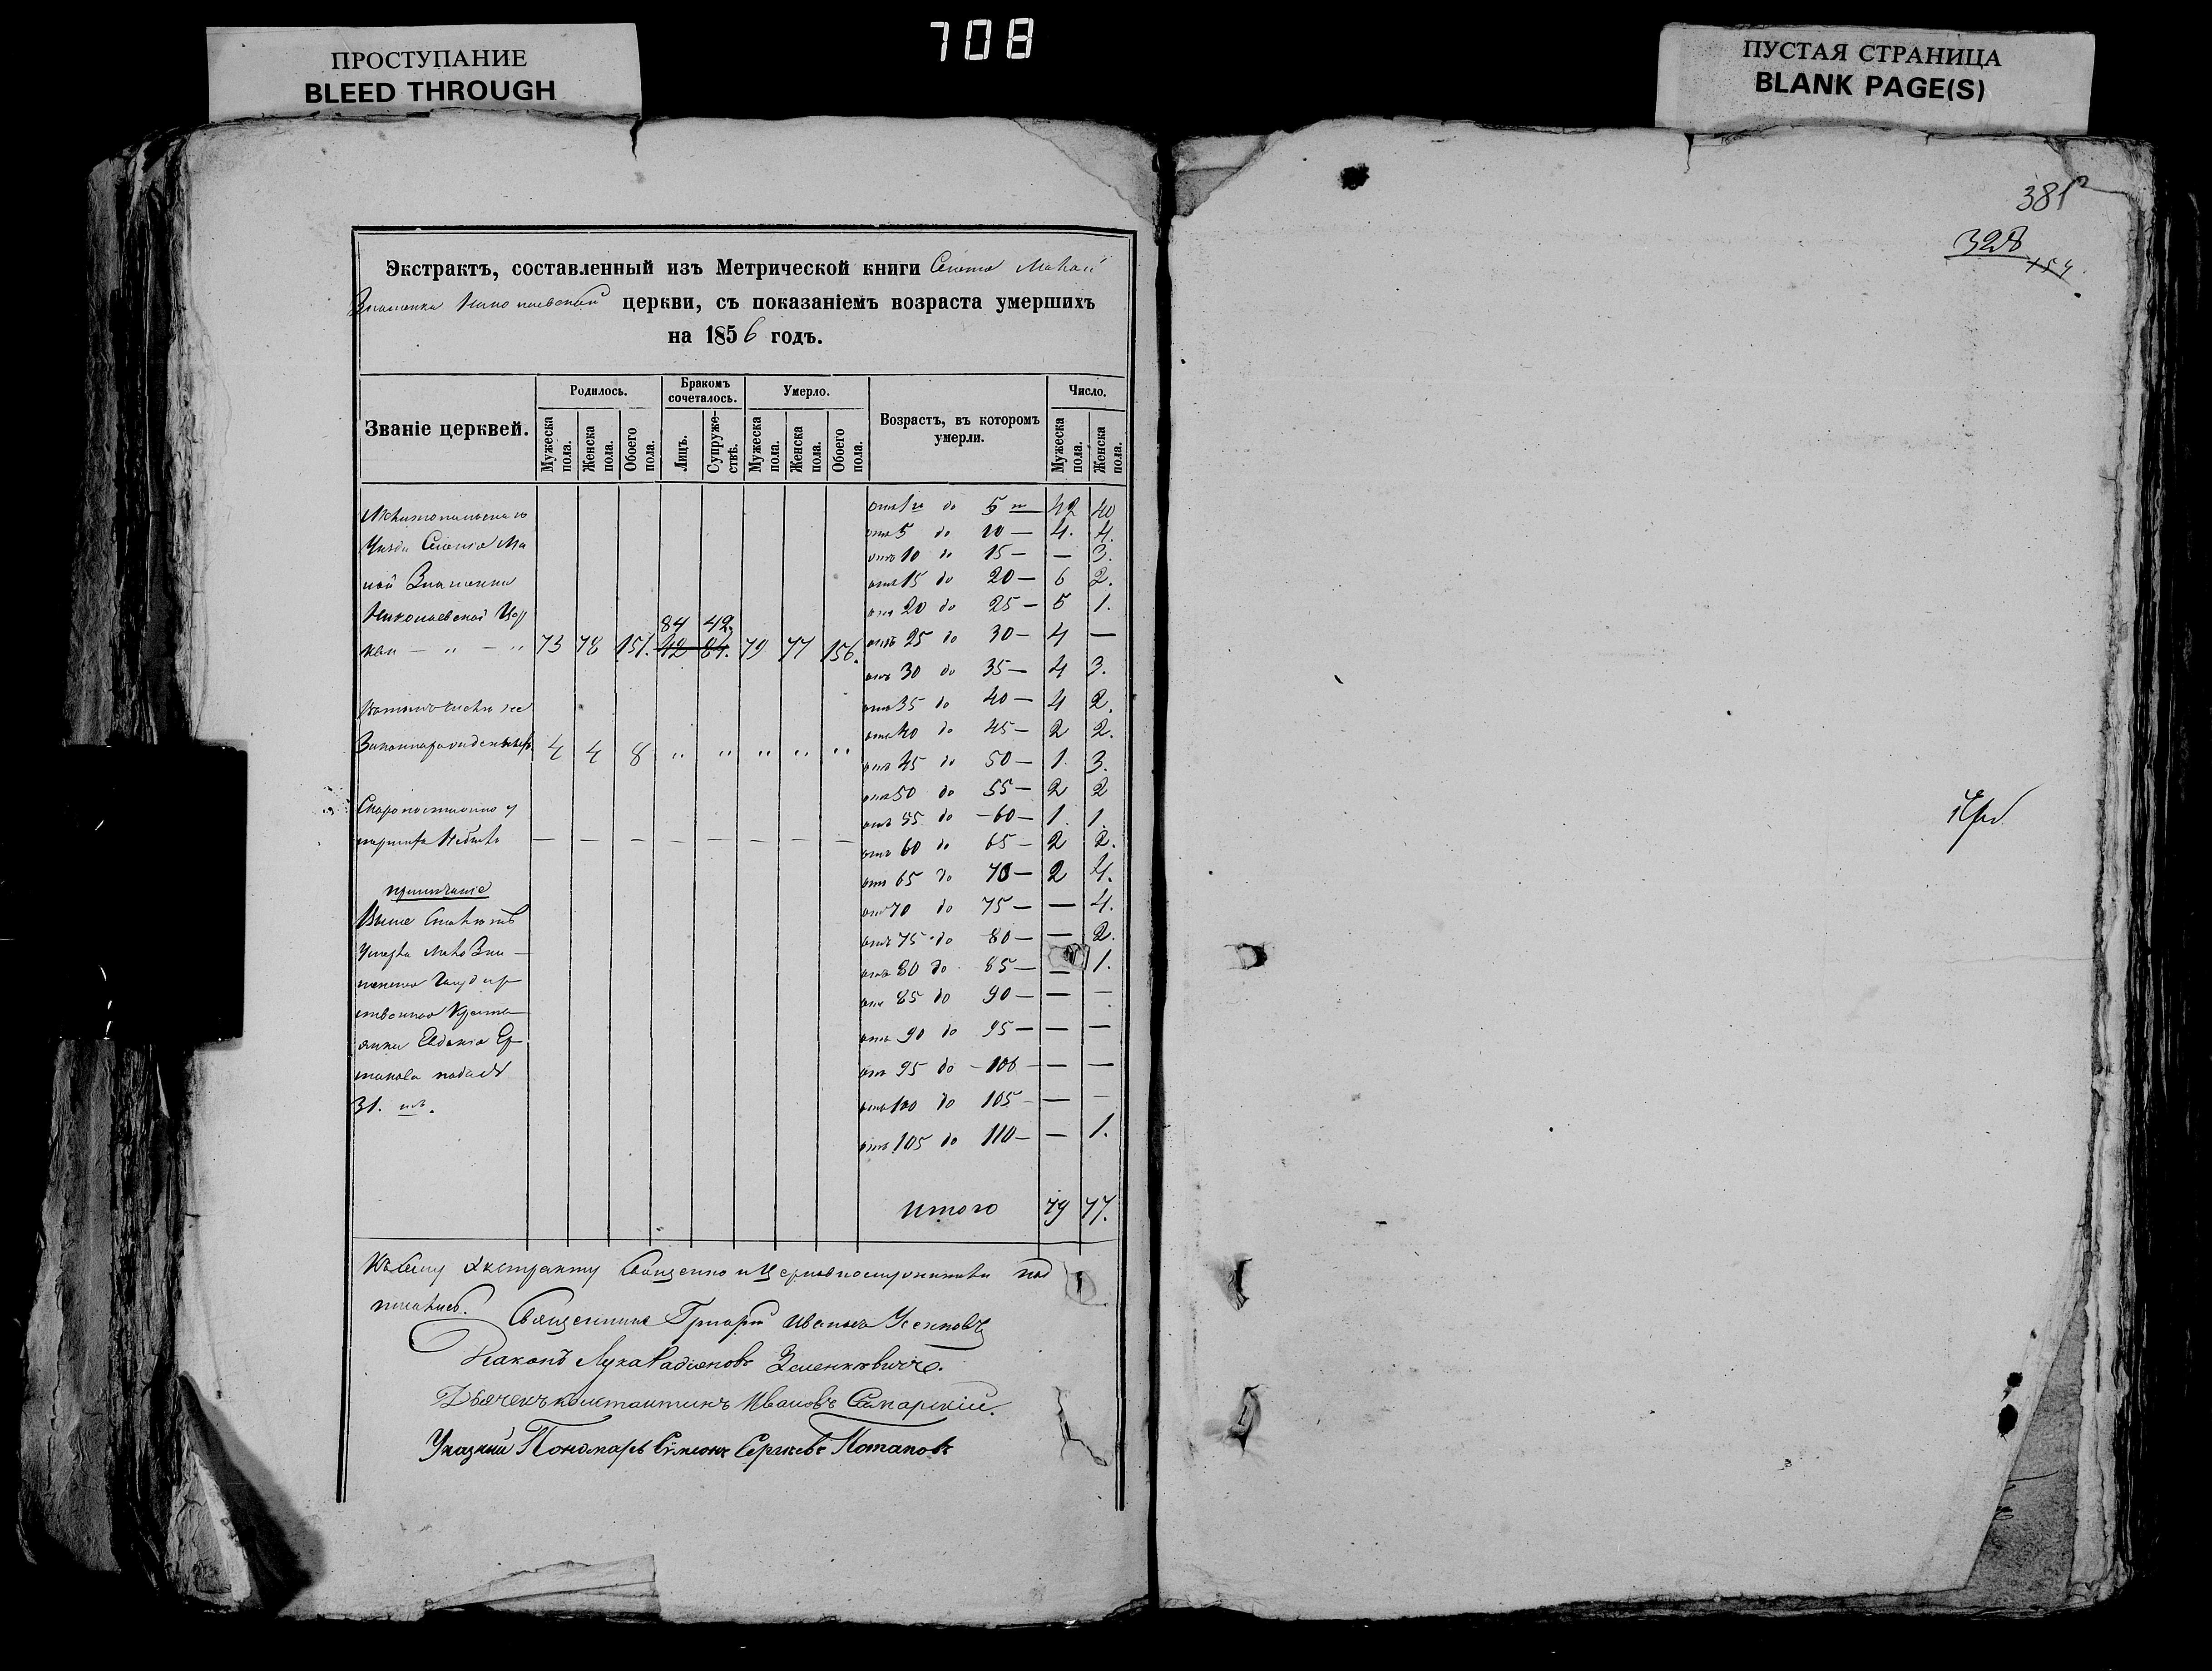 708
ПРОСТУПАНИЕ
BLEED THROUGH
ПУСТАЯ СТРАНИЦА
BLANK PAGE(S)
381
328
154
Экстрактъ, составленный изъ Метрической книги Селенія Малой
Знаменки Николаевской церкви, съ показаніемъ возраста умершихъ
на 1856 годъ.
Званіе церквей.
Родилось.
Мужеска пола.
Женска пола.
Обоего пола.
Бракомъ сочеталось.
Лицъ.
Супружествъ.
Умерло.
Мужеска пола.
Женска пола.
Обоего пола.
Возрастъ, въ которомъ умерли.
Число.
Мужеска пола.
Женска пола.
Мелитопольскаго
Уезда Селенія Ма
лой Знаменки
Николаевской Цер
84 42.
кви — " — " 73 78 151. 42 84. 79 77 156.
Въ томъ числѣ не
Законнорожденныхъ 4 4 8 " " " " "
Скоропостижно у
мершихъ Небыло — — — — — — — —
примѣчаніе
Выше
Умерла Мало Зна
менки Государ
ственная Кресть
янка Евдокія Ер
макова
31.
отъ 1го до 5 — 42 40
отъ 5 до 10 — 4. 4.
отъ 10 до 15 — — 3.
отъ 15 до 20 — 6 2.
отъ 20 до 25 — 5 1.
отъ 25 до 30 — 4 —
отъ 30 до 35 — 4 3.
отъ 35 до 40 — 4 2.
отъ 40 до 45 — 2 2.
отъ 45 до 50 — 1. 3.
отъ 50 до 55 — 2 2
отъ 55 до 60 — 1. 1.
отъ 60 до 65 — 2 2.
отъ 65 до 70 — 2 4.
отъ 70 до 75 — — 4.
отъ 75 до 80 — — 2.
отъ 80 до 85 — — 1.
отъ 85 до 90 — — —
отъ 90 до 95 — — —
отъ 95 до 100 — — —
отъ 100 до 105 — — —
отъ 105 до 110 — — 1.
Итого 79 77.
Къ сему Екстракту Священно и Церковнослужители под
писались.
Священникъ Григорій Ивановъ
Діаконъ Лука Радіоновъ Зеленкевичъ.
Дьячекъ Константинъ Ивановъ Самарскій.
Указный Пономарь Сѵмеонъ Сергѣевъ Потаповъ